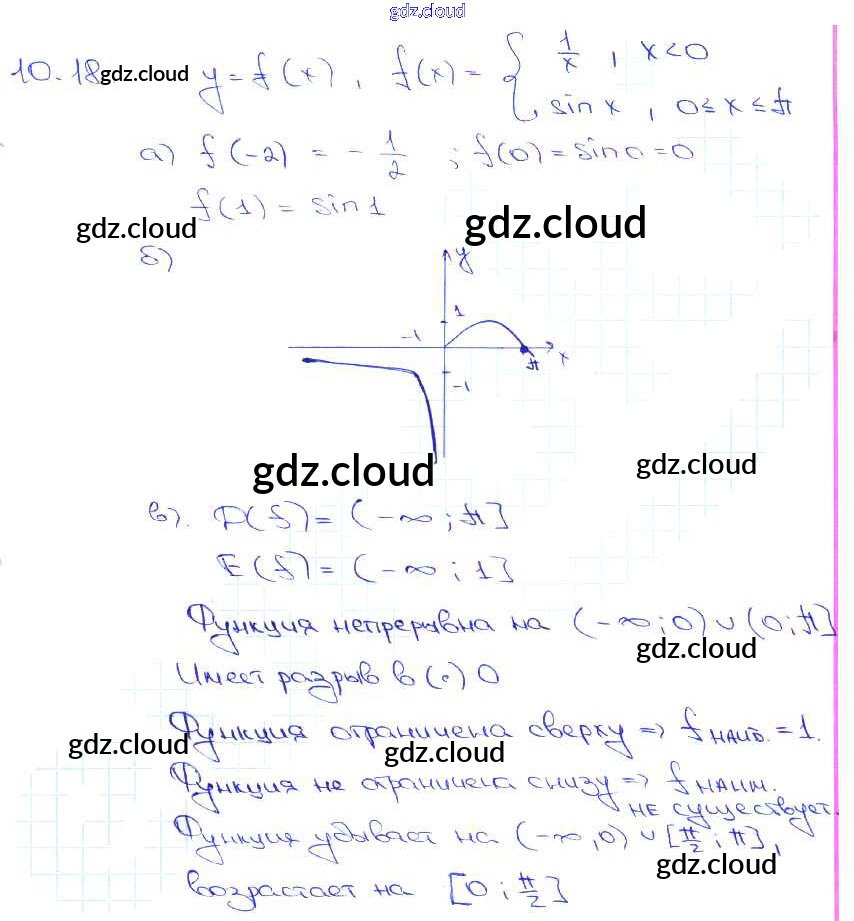 gdz.cloud
10.18 gdz.cloud y = f(x), f(x) = { 1/x, x<0
sin x, 0≤x≤π
а) f(-2) = -1/2; f(0) = sin 0 = 0
f(1) = sin 1
gdz.cloud gdz.cloud
б)
y
1
-1
x
π
-1
gdz.cloud gdz.cloud
в). D(f) = (-∞; π]
E(f) = (-∞; 1]
Функция непрерывна на (-∞; 0) ∪ (0; π]
gdz.cloud
Имеет разрыв в (·) 0
Функция ограничена сверху => f НАИБ. = 1.
gdz.cloud gdz.cloud
Функция не ограничена снизу => f НАИМ.
не существует.
Функция убывает на (-∞, 0) ∪ [π/2; π],
gdz.cloud
возрастает на [0; π/2]